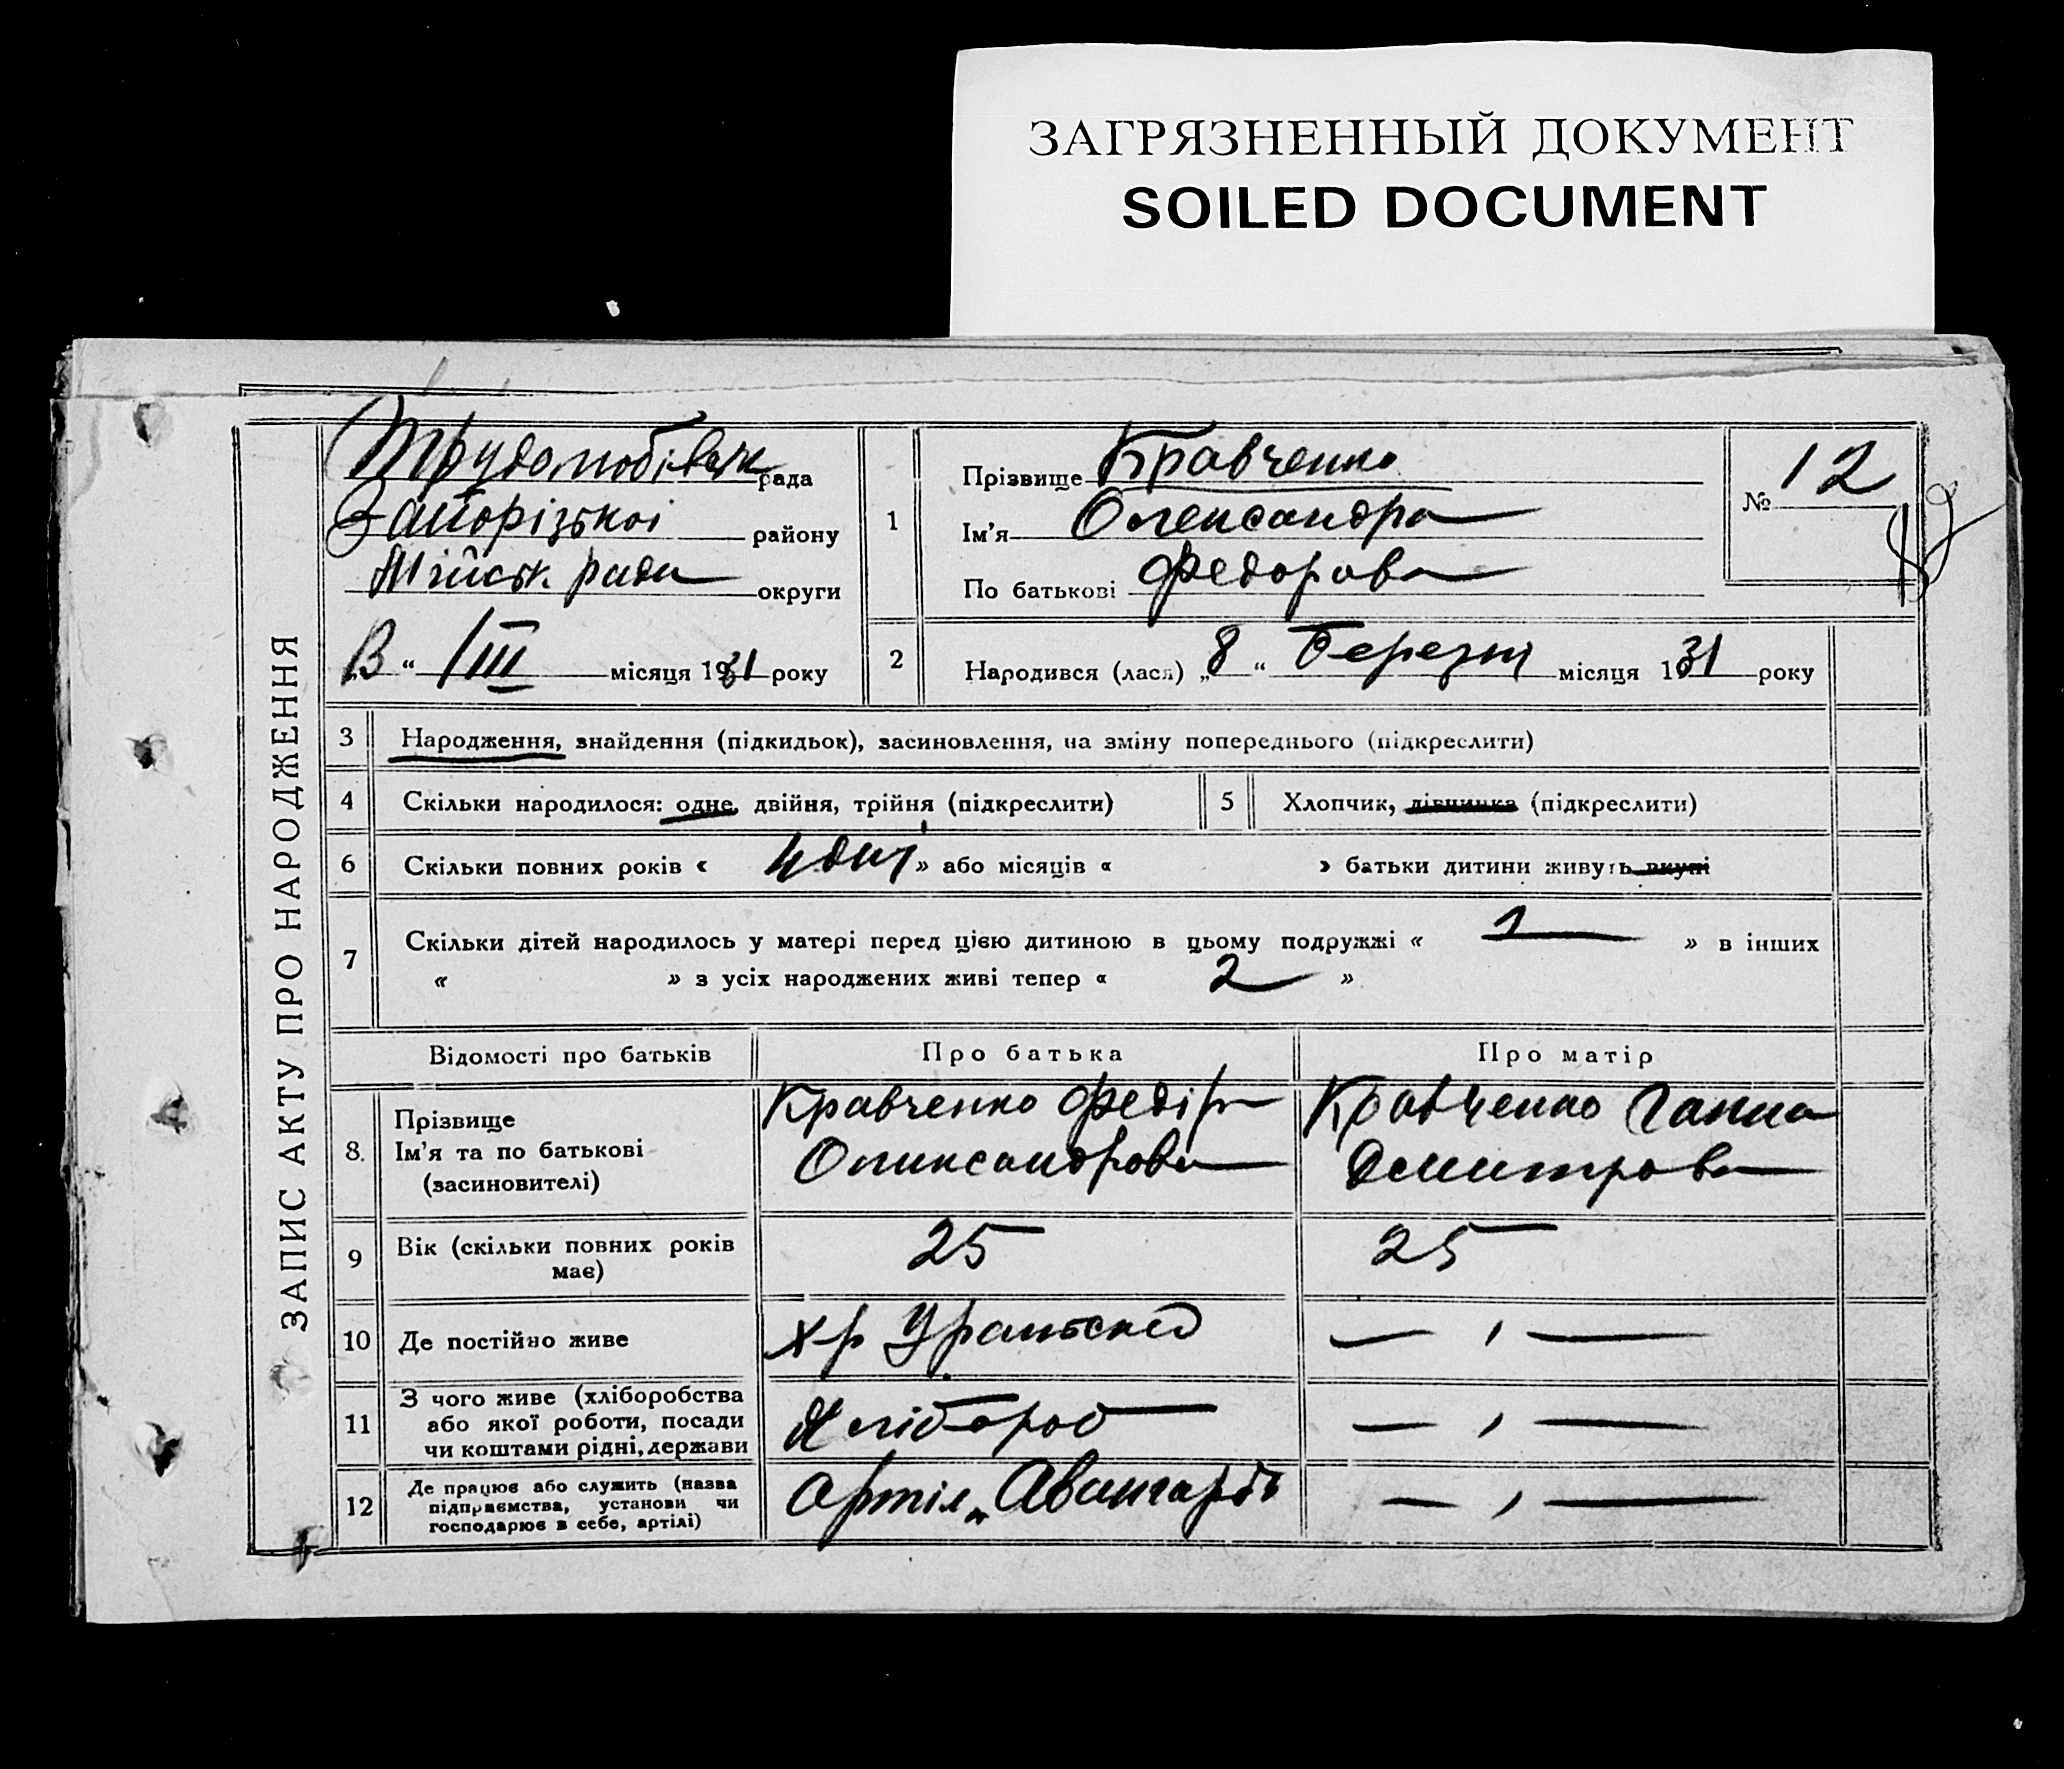 ЗАГРЯЗНЕННЫЙ ДОКУМЕНТ
SOILED DOCUMENT
ЗАПИС АКТУ ПРО НАРОДЖЕННЯ
рада
Запорізької району
Міськ ради округи
місяця 1931 року
1
Прізвище Кравченко
Ім'я Олександра
По батькові Федорова
№ 12
2
Народився (лася) „8“ Березня місяця 1931 року
3 Народження, знайдення (підкидьок), засиновлення, на зміну попереднього (підкреслити)
4 Скільки народилося: одне, двійня, трійня (підкреслити)
5 Хлопчик, дівчинка (підкреслити)
6 Скільки повних років « » або місяців « » батьки дитини живуть вкупі
7 Скільки дітей народилось у матері перед цією дитиною в цьому подружжі « 1 » в інших
« » з усіх народжених живі тепер « 2 »
Відомості про батьків Про батька Про матір
8. Прізвище
Ім'я та по батькові
(засиновителі)
Кравченко Федір
Олександрова
Кравченко Ганна
Дмитрова
9 Вік (скільки повних років
має)
25
25
10 Де постійно живе
хр
— , —
11 З чого живе (хліборобства
або якої роботи, посади
чи коштами рідні, держави
Хлібороб
— , —
12 Де працює або служить (назва
підприємства, установи чи
господарює в себе, артілі)
Артіл „Авангардъ
— , —